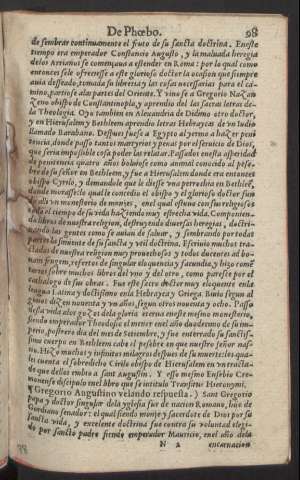 De Phœbo. 98
de sembrar continuamente el fruto de su sancta doctrina. Eneste
tiempo era emperador Constancio Augusto, y la maluada heregia
delos Arrianos se començaua a estender en Roma: por lo qual como
entonces sele offrecesse a este glorioso doctor la ocasion que siempre
auia desseado, tomada su liberia y las cosas necessarias para el ca-
mino, partiose alas partes del Oriente. Y vino se a Gregorio Nazan
zeno obispo de Constantinopla, y aprendio del las sacras letras de-
la Theologia. Oyo tambien en Alexandria de Didimo otro doctor,
y en Hierusalem y Bethleem aprendio letras Hebraycas de vn Iudio
llamado Barabano. Despues fuese a Egipto al yermo a hazer peni
tencia, donde passo tantos martyrios y penas por el seruicio de Dios,
que seria impossible cosa poder las relatar. Passados enesta asperidad
de penitencia quatro años boluiose como animal conocido al pese-
bre de su señor en Bethleem, y fue a Hierusalem donde era entonces
obispo Cyrilo, y demandole que le diesse vna perrochia en Bethleē,
donde moraße: la qual le concedio el obispo y el glorioso doctor hizo
alli vn monesterio de monjes, enel qual estuuo con sus religiosos
toda el tiempo de su vida haziendo muy estrecha vida. Componien-
do libros de nuestra religion, destruyendo diuersas heregias, doctri-
nando las gentes como se auian de saluar, y sembrando por todas
partes la simiente de su sancta y vtil doctrina. Escriuio muchos tra-
ctados de nuestra religion muy prouechosos y todos docentes al bo-
nam frugem, refertos de singular eloquencia y facundia, y hizo comē
tarios sobre muchos libros del vno y del otro, como paresce por el
cathalogo de sus obras. Fue este sacro doctor muy eloquente enla
lengua Latina y doctissimo enla Hebrayca y Griega. Biuio segun al
gunos dizen nouenta y vn años, segun otros nouenta y ocho. Passo
desta vida alos gozos dela gloria eterna eneste mesmo monesterio,
siendo emperador Theodosio el menor enel año duodecimo de su im-
perio, postrero dia del mes de Setembre, y fue enterrado su sanctissi-
mo cuerpo en Bethleem cabe el pesebre en que nuestro señor nas-
cio. Hizo muchos y infinitos milagros despues de su muerte: los qua-
les cuenta el sobredicho Cirilo obispo de Hierusalem en vn tracta-
do que dellos embio a sant Augustin. Y esse mesmo Eusebio Cre-
monense discipulo enel libro que se intitula Transitus Hieronymi.
Y Gregorio Augustino velando respuesta.) Sant Gregorio
papa y doctor singular dela yglesia fue de nacion Romano, hijo de
Gordiano senador: el qual siendo monje y sacerdote de Dios por su
sancta vida, y excelente doctrina fue contra su voluntad elegi-
do por sancto padre siendo emperador Mauricio, en el año dela
N 2 encarnacion
98